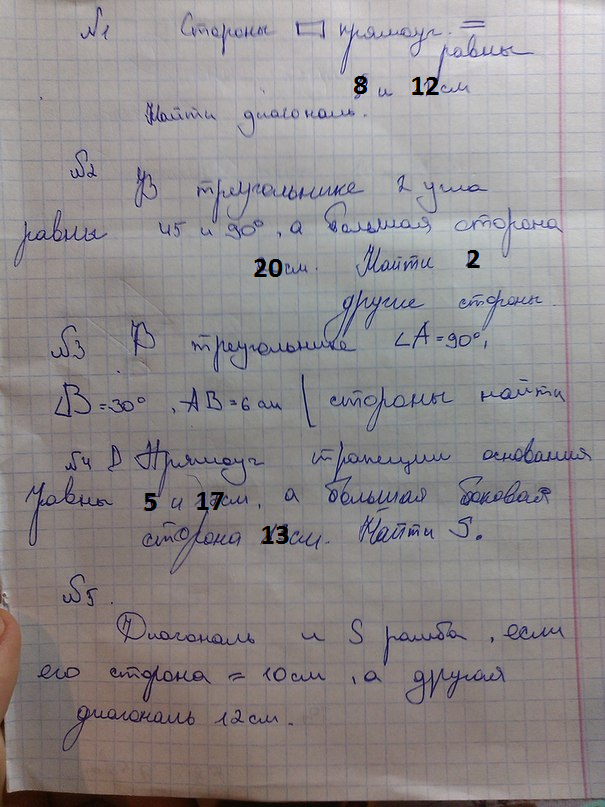 №1 Стороны прямоуг. =
равны
8 и 12см
Найти диагональ.
№2 В треугольнике 2 угла
равны 45 и 90°, а большая сторона
20см. Найти 2
другие стороны.
№3 В треугольнике ∠A=90°,
∠B=30°, AB=6см стороны найти
№4 В Прямоуг трапеции основания
равны 5 и 17см, а большая боковая
сторона 13см. Найти S.
№5.
Диагональ и S ромба, если
его сторона = 10см, а другая
диагональ 12см.